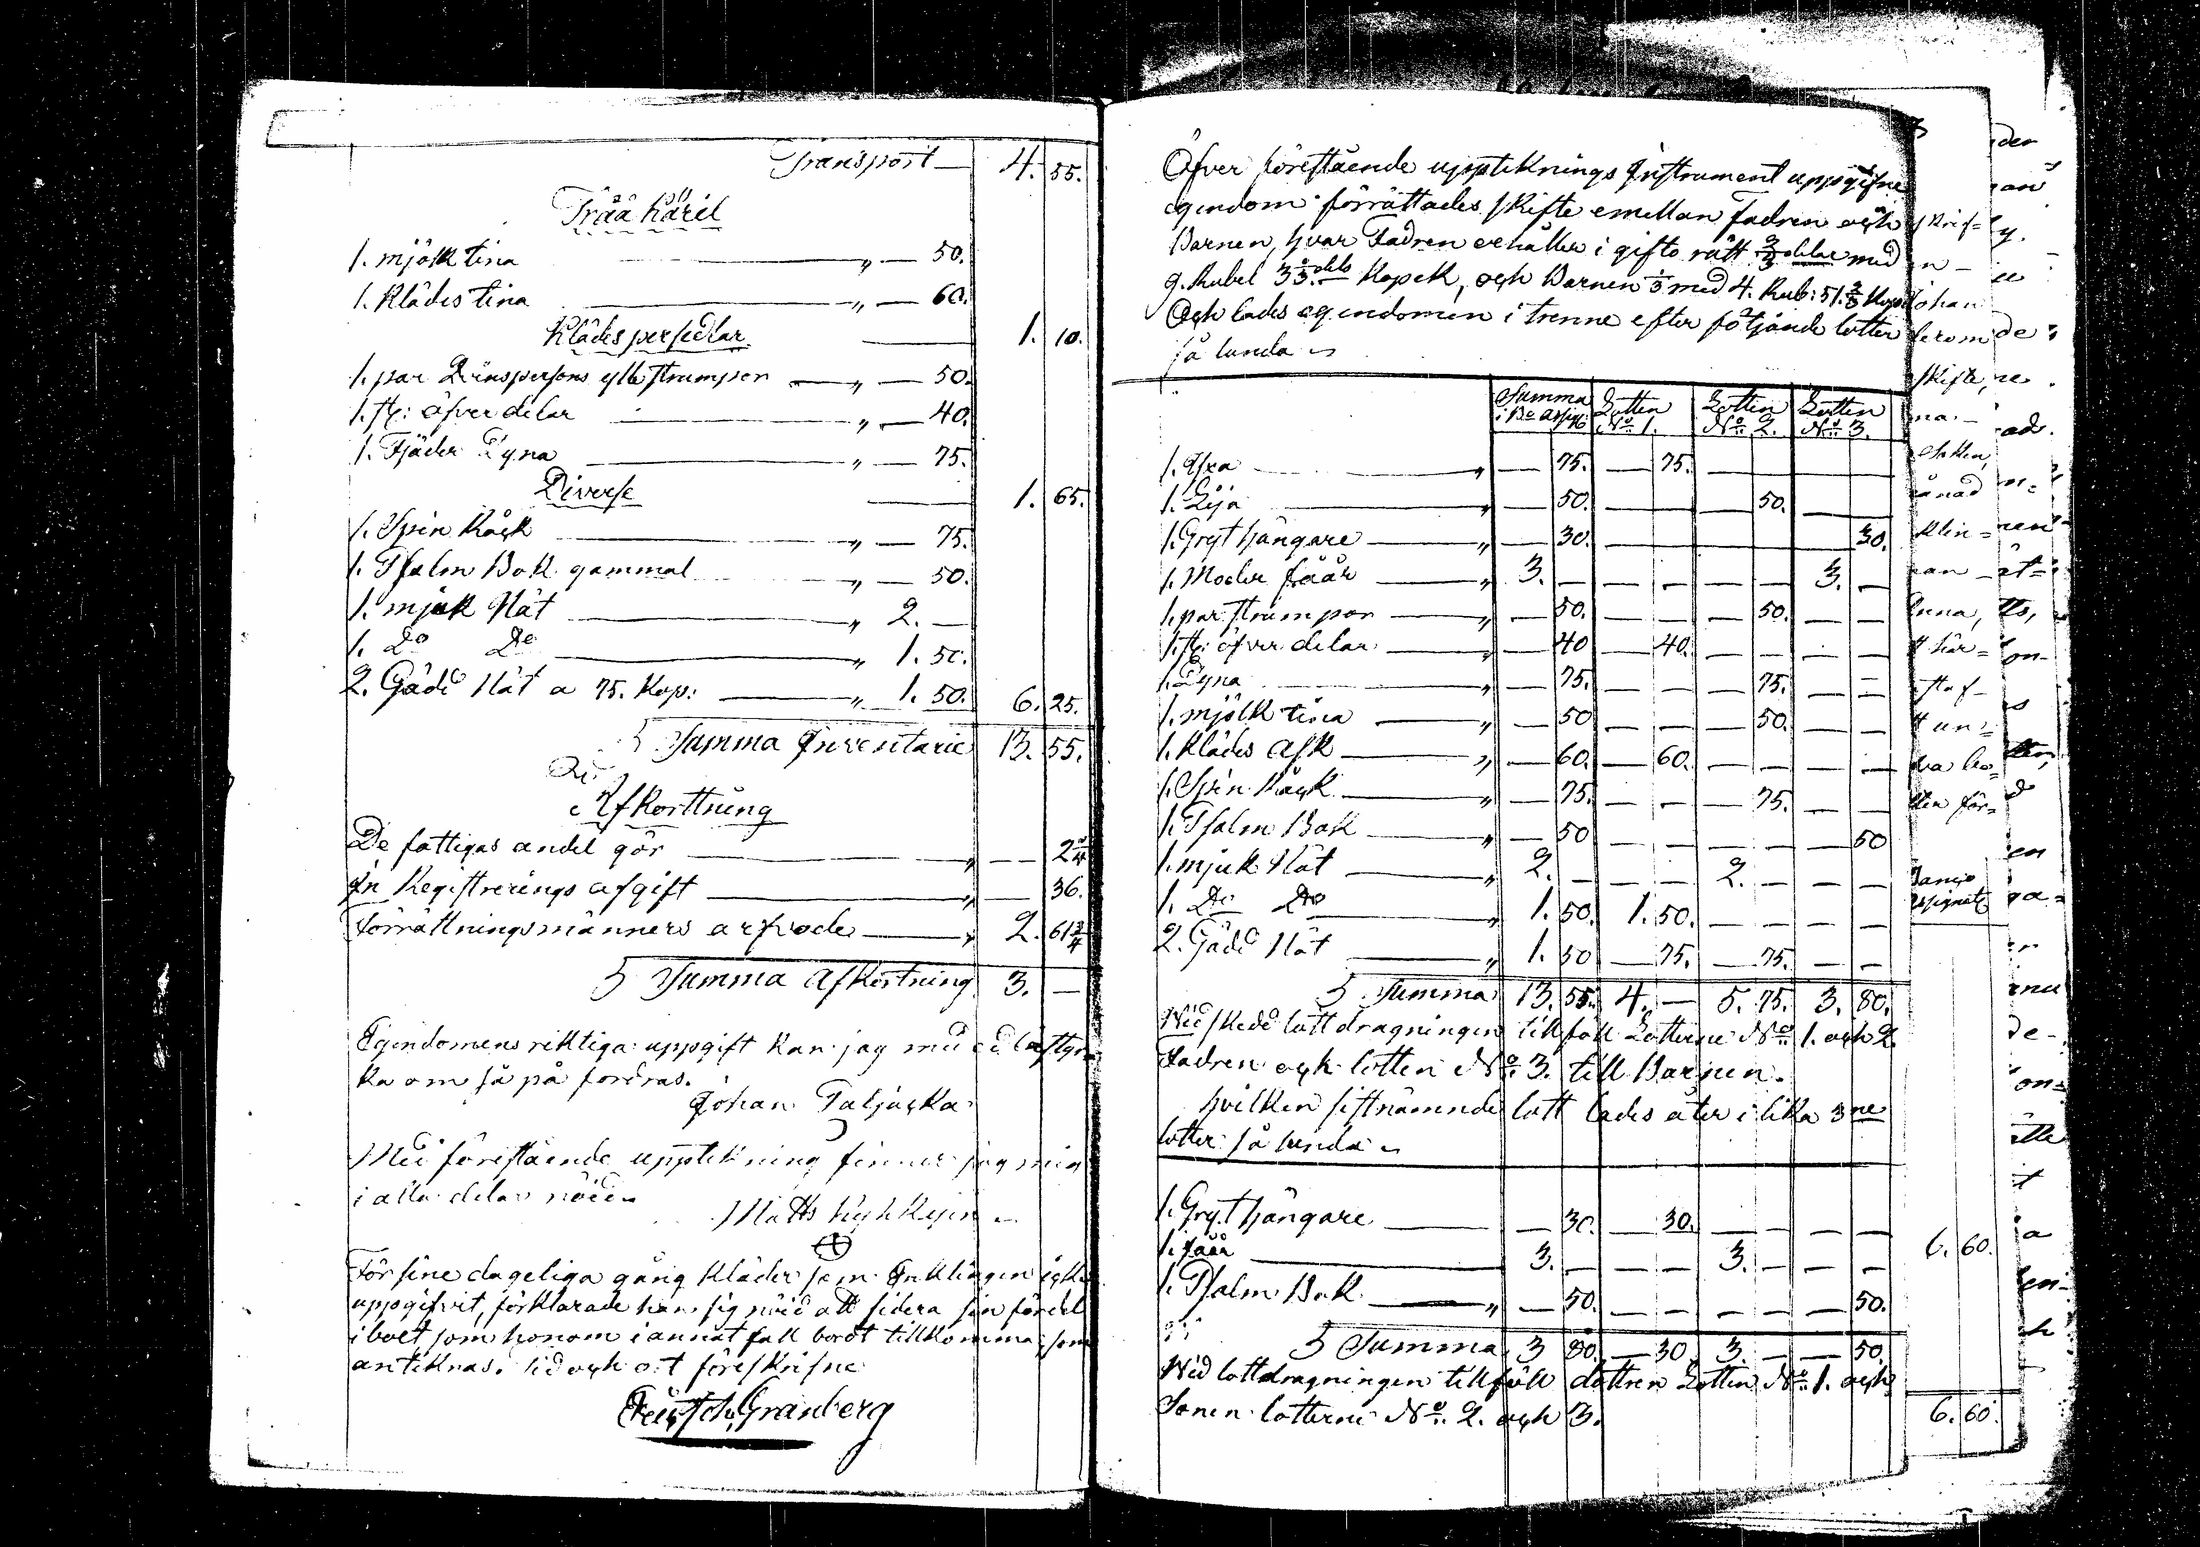 Transport — 4. 55.
Trää käril
1. mjölk tina — „ — 50.
1. Klädes tina — „ — 60.
Klädes persedlar — 1. 10.
1. par qvinspersons ylle strumpor — „ — 50.
1. st: öfver delar — „ — 40.
1. Fjäder Dyna — „ — 75.
Diverse — 1. 65.
1. Spin Råck — „ — 75.
1. Psalm Bok gammal — „ — 50.
1. mjuk Nät — „ 2. —
1. Do Do — „ 1. 50.
2. Gädd Nät a 75. Kop: — „ 1. 50. 6. 25.
Summa Inventarie 13. 55.
Afkorttning
De fattigas andel gör — „ — 2 3/4
In Registrerings afgift — „ — 36.
Förrättningsmänners arfvode — „ 2. 61 1/4
Summa Afkortning 3. —
Egendomens riktiga uppgift kan jag med ed bestyr-
ka om så på fordras.
Johan
Med förestående upptekning finner jag mig
i alla delar nöid
Matts
För sine dageliga gång kläder som Enklingen icke
uppgifvit, förklarade han sig nöid att sidera sin fördel
i boet som honom i annat fall bordt tillkomma, som
anteknas. tid och ort föreskrifne
Granberg
Öfver förestående uppteknings Instrument uppgifne
egendom förrättades skifte emellan Fadren och
Barnen, hvar Fadren erhåller i gifto rätt 2/3 delar med
9. Rubel 3 1/3 dels Kopek, och Barnen 1/3 med 4. Rub: 51 2/3 Kop:
Och lades egendomen i trenne efter följande lotter
så lunda
Summa i Bo Assign: Lotten No 1. Lotten No 2. Lotten No 3.
1. Yxa — „ — 75. — 75. — —
1. Lija — „ — 50. — — 50. —
1. Gryt hängare — „ — 30. — — — 30.
1. Moder fåår — „ 3. — — — — — 3. —
1. par strumpor — „ — 50. — — — 50. — —
1. st: öfver delar — „ — 40 — 40. — — — —
1. Dyna — „ — 75. — — — 75. — —
1. mjölk tina — „ — 50 — — — 50. — —
1. Klädes Ask — „ — 60. — 60. — — — —
1. Spin Råck — „ — 75. — — — 75. — —
1. Psalm Bok — „ — 50 — — — — — 50
1. mjuk Nät — „ 2. — — — 2. — — —
1. Do Do — „ 1. 50. 1. 50. — — — —
2. Gädd Nät — „ 1. 50 — 75. — 75. — —
Summa 13. 55. 4. — 5. 75. 3. 80.
Wid skedd lottdragningen tillföll Lotterne No 1. och 2.
Fadren och lotten No 3. till Barnen.
hvilken sistnämnde lott lades åter i lika 3ne
lotter så lunda
1. Gryt hängare — — 30. — 30. — — — —
1. Fåår — 3. — — — 3. — — —
1. Psalm Bok — „ — 50. — — — — — 50.
Summa 3 80. — 30 3. — — 50.
Wid lottdragningen tillföll dottren Lotten No 1. och
Sonen lotterne No 2. och 3.
6. 60.
6. 60.